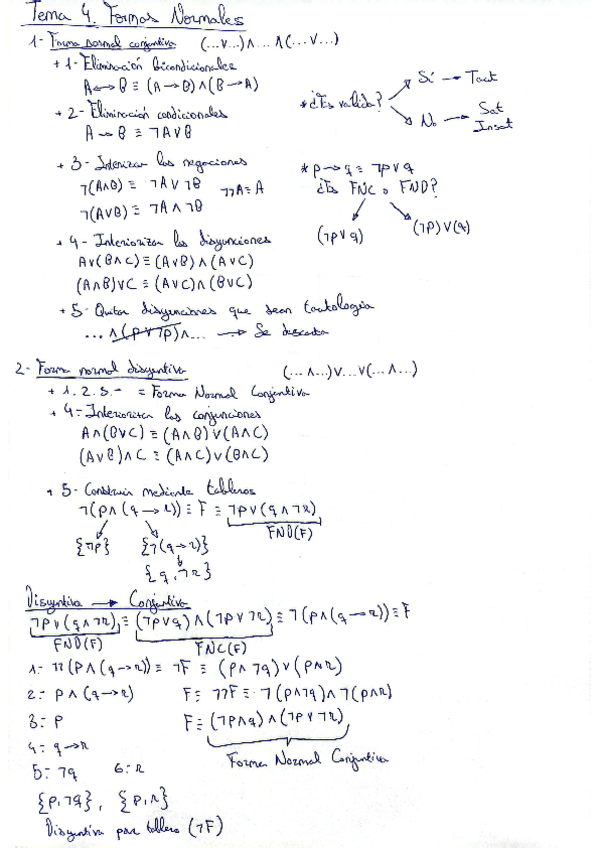 Tema 4. Formas Normales
1- Forma normal conjuntiva (...∨...)∧...∧(...∨...)
+ 1- Eliminación bicondicionales
A↔B ≡ (A→B)∧(B→A)
+ 2- Eliminación condicionales
A→B ≡ ¬A∨B
* ¿Es valida?
Sí → Taut
No → Sat
Insat
+ 3- Interiizar las negaciones
¬(A∧B) ≡ ¬A∨¬B ¬¬A≡A
¬(A∨B) ≡ ¬A∧¬B
* p→q ≡ ¬p∨q
¿Es FNC o FND?
(¬p∨q) (¬p)∨(q)
+ 4- Interiorizar las disyunciones
A∨(B∧C)≡(A∨B)∧(A∨C)
(A∧B)∨C≡(A∨C)∧(B∨C)
+ 5- Quitar disyunciones que sean tautologia
...∧(p∨¬p)∧... → Se descarta
2- Forma normal disyuntiva (...∧...)∨...∨(...∧...)
+ 1. 2. 3.- = Forma Normal Conjuntiva
+ 4- Interiorizar las conjunciones
A∧(B∨C)≡(A∧B)∨(A∧C)
(A∨B)∧C≡(A∧C)∨(B∧C)
+ 5- Construir mediante tableros
¬(p∧(q→r))≡F≡¬p∨(q∧¬r)
FND(F)
{¬p} {¬(q→r)}
{q,¬r}
Disyuntiva → Conjuntiva
¬p∨(q∧¬r)≡(¬p∨q)∧(¬p∨¬r)≡¬(p∧(q→r))≡F
FND(F) FNC(F)
1- ¬¬(p∧(q→r))≡¬F≡(p∧¬q)∨(p∧r)
2- p∧(q→r) F≡¬¬F≡¬(p∧¬q)∧¬(p∧r)
3- p F≡(¬p∧q)∧(¬p∨¬r)
4- q→r
Forma Normal Conjuntiva
5- ¬q 6- r
{p,¬q}, {p,r}
Disyuntiva por tablero (¬F)